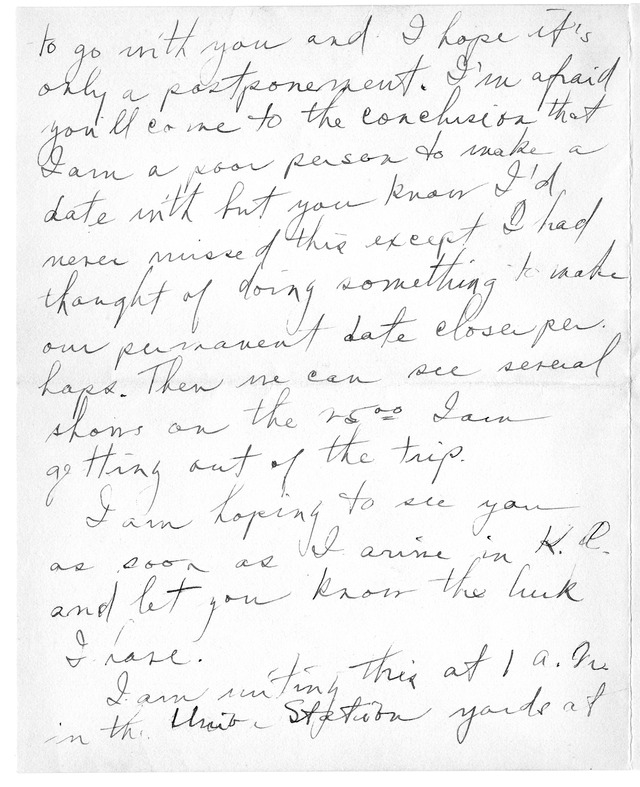 to go with you and I hope it's
only a postponement. I'm afraid
you'll come to the conclusion that
I am a poor person to make a
date with but you know I'd
never missed this except I had
thought of doing something to make
our permanent date closer per.
haps. Then we can see several
shows on the 25⁰⁰ I am
getting out of the trip.
I am hoping to see you
as soon as I arive in K. C.
and let you know the luck
I have.
I am writing this at 1 a. m.
in the Union Station yards at